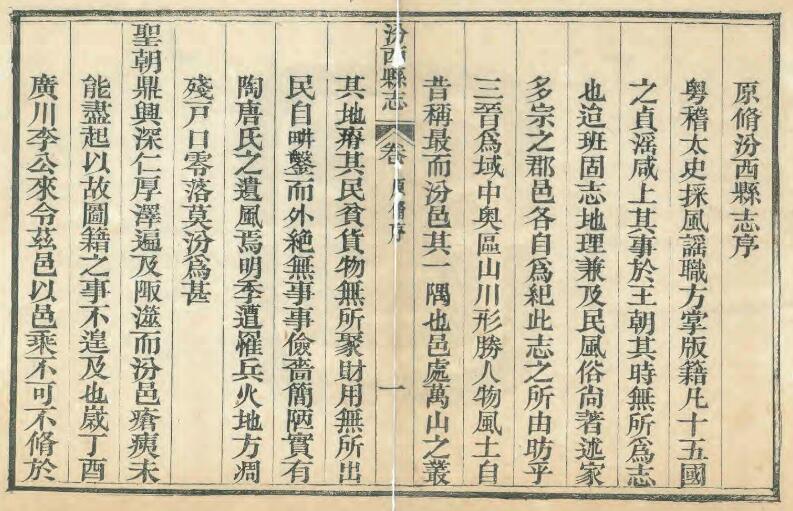 原脩汾西縣志序
粵稽太史採風謡職方掌版籍凡十五國
之貞滛咸上其事於王朝其時無所爲志
也迨班固志地理兼及民風俗尙著述家
多宗之郡邑各自爲紀此志之所由昉乎
三晉爲域中奥區山川形勝人物風土自
昔稱最而汾邑其一隅也邑處萬山之叢
汾西縣志 卷 原脩序 一
其地瘠其民貧貨物無所聚財用無所出
民自畊鑿而外絶無事事儉嗇簡陋實有
陶唐氏之遺風焉明季遭罹兵火地方凋
殘戸口零落莫汾爲甚
聖朝鼎興深仁厚澤遍及陬澨而汾邑瘡痍未
能盡起以故圖籍之事不遑及也嵗丁酉
廣川李公來令茲邑以邑乘不可不脩於